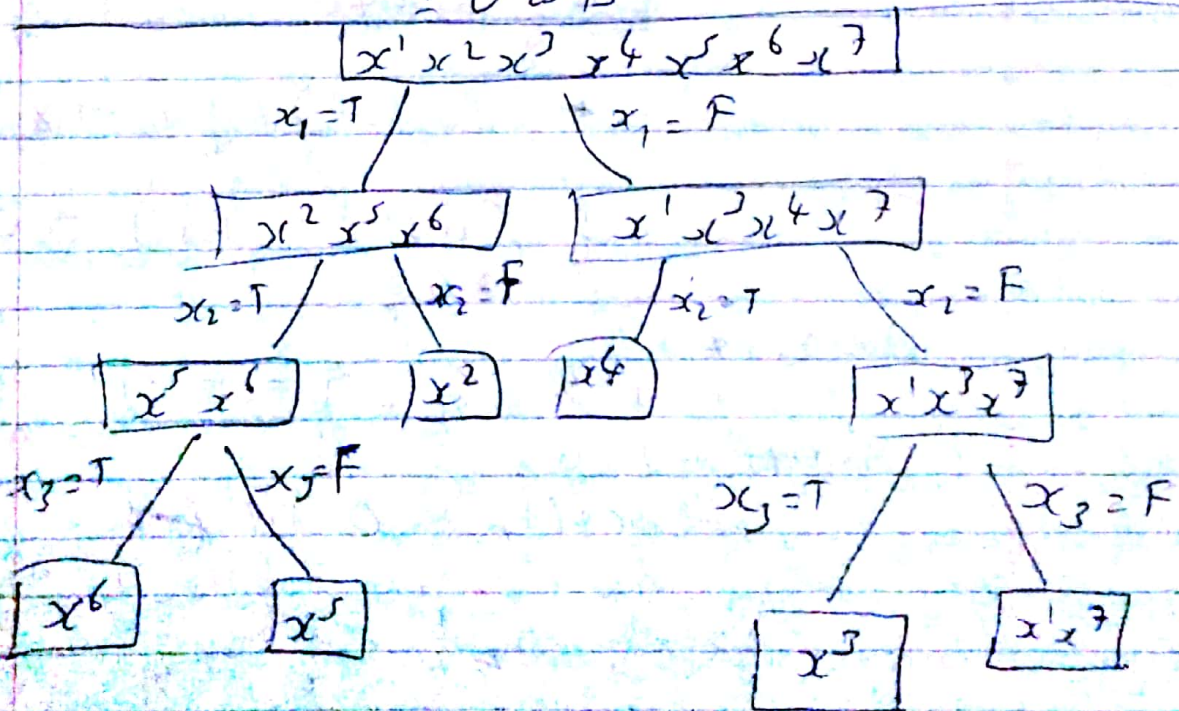 x¹ x² x³ x⁴ x⁵ x⁶ x⁷
x₁=T x₁ = F
x² x⁵ x⁶ x¹ x³ x⁴ x⁷
x₂=T x₂=F x₂=T x₂ = F
x⁵ x⁶ x² x⁴ x¹ x³ x⁷
x₃=T x₃=F x₃=T x₃ = F
x⁶ x⁵ x³ x¹ x⁷